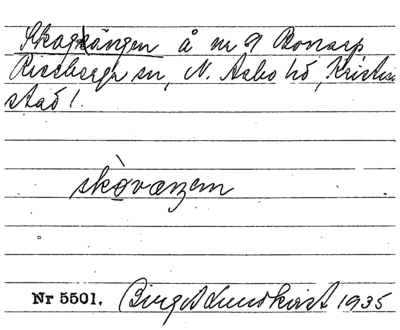 Skogsängen å nr 9 Bonarp
Riseberga sn, N. Asbo hd, Kristian
stad l.
skòvæŋen
Nr 5501. Birgit Lundkvist 1935